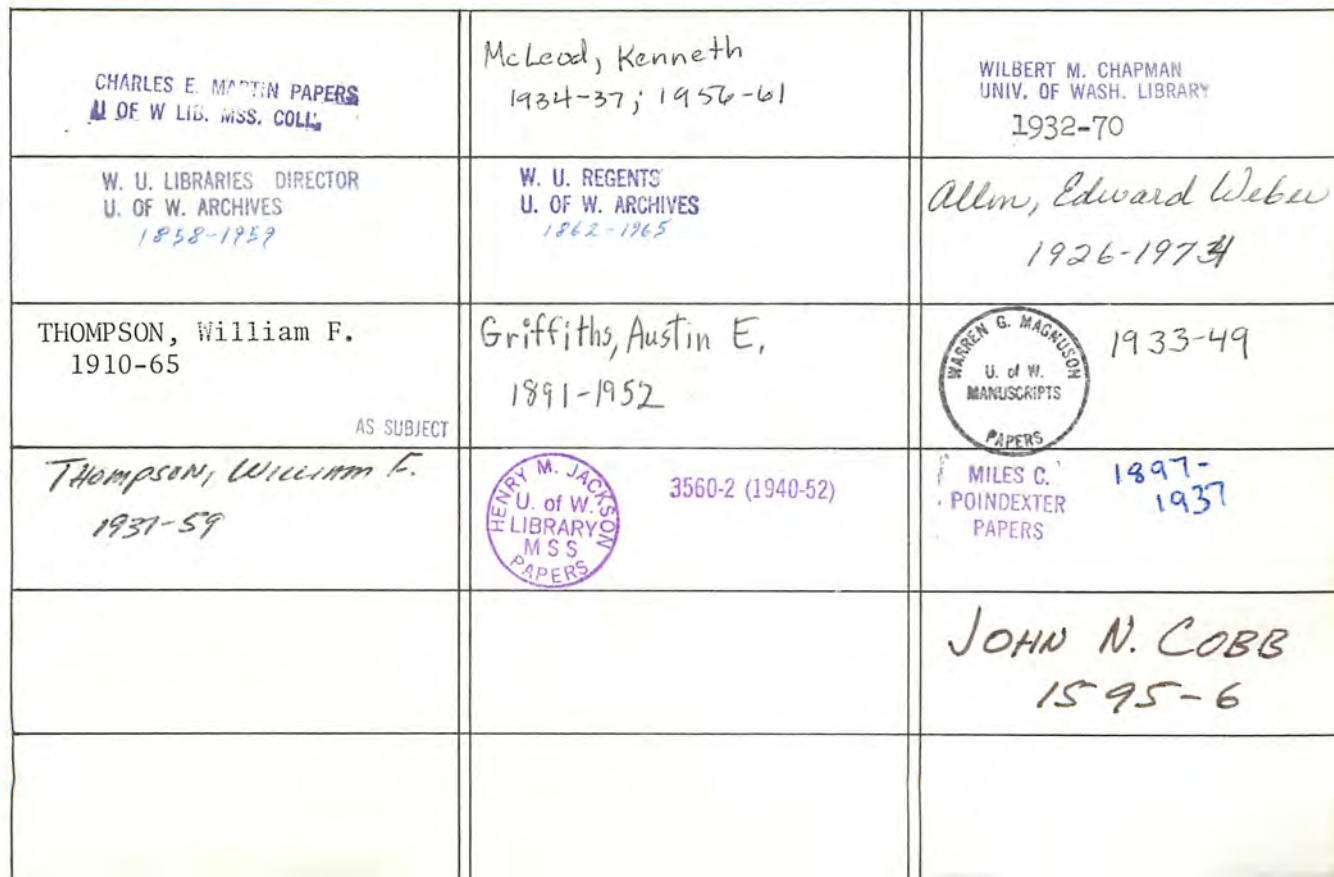 CHARLES E. MARTIN PAPERS
U OF W LIB. MSS. COLL.
McLeod, Kenneth
1934-37; 1956-61
WILBERT M. CHAPMAN
UNIV. OF WASH. LIBRARY
1932-70
W. U. LIBRARIES DIRECTOR
U. OF W. ARCHIVES
1858-1959
W. U. REGENTS
U. OF W. ARCHIVES
1862-1965
Allen, Edward Weber
1926-1974
THOMPSON, William F.
1910-65
AS SUBJECT
Griffiths, Austin E.
1891-1952
WARREN G. MAGNUSON
U. of W.
MANUSCRIPTS
PAPERS
1933-49
Thompson, William F.
1931-59
HENRY M. JACKSON
U. of W.
LIBRARY
MSS
PAPERS
3560-2 (1940-52)
MILES C.
POINDEXTER
PAPERS
1897-
1937
JOHN N. COBB
1595-6